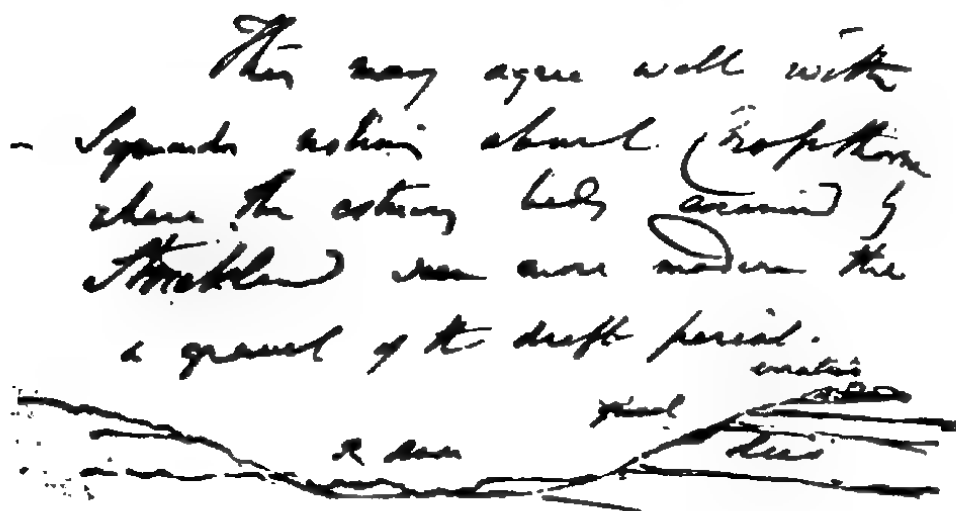 This may agree well with
Symonds notion about Cropthorne
where the estuary beds examined by
Strickland seem more modern the
a gravel of the drift period.
erratics
R Avon
Lias